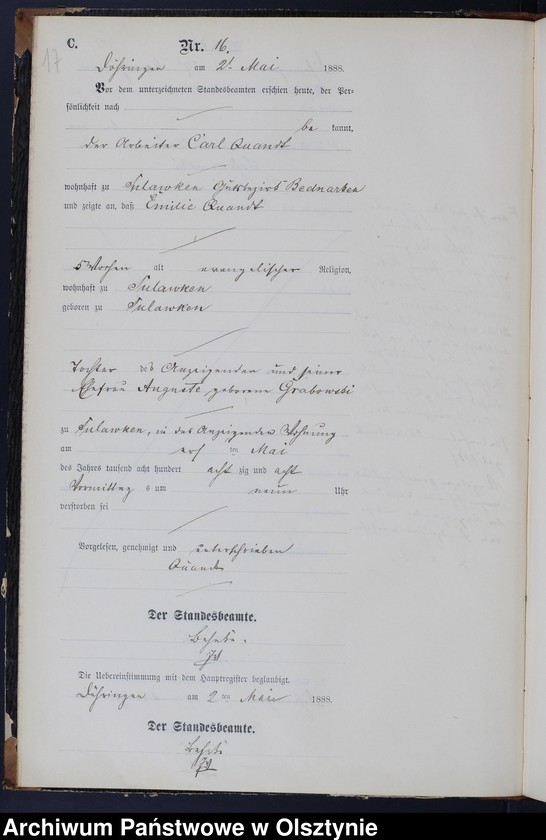 17
C.
Nr. 16.
Döhringen am 2t Mai 1888.
Vor dem unterzeichneten Standesbeamten erschien heute, der Per-
sönlichkeit nach
be kannt,
der Arbeiter Carl Quandt
wohnhaft zu Tulawken Gutsbezirk Bednarken
und zeigte an, daß Emilie Quandt
5 Wochen alt evangelischer Religion,
wohnhaft zu Tulawken
geboren zu Tulawken
Tochter des Anzeigenden und seiner
Ehefrau Auguste geborene Grabowski
zu Tulawken, in des Anzeigenden Wohnung
am ersten Mai
des Jahres tausend acht hundert acht zig und acht
Vormittags um neun Uhr
verstorben sei
Vorgelesen, genehmigt und unterschrieben
Quandt
Der Standesbeamte.
Die Uebereinstimmung mit dem Hauptregister beglaubigt.
Döhringen am 2ten Mai 1888.
Der Standesbeamte.
Archiwum Państwowe w Olsztynie